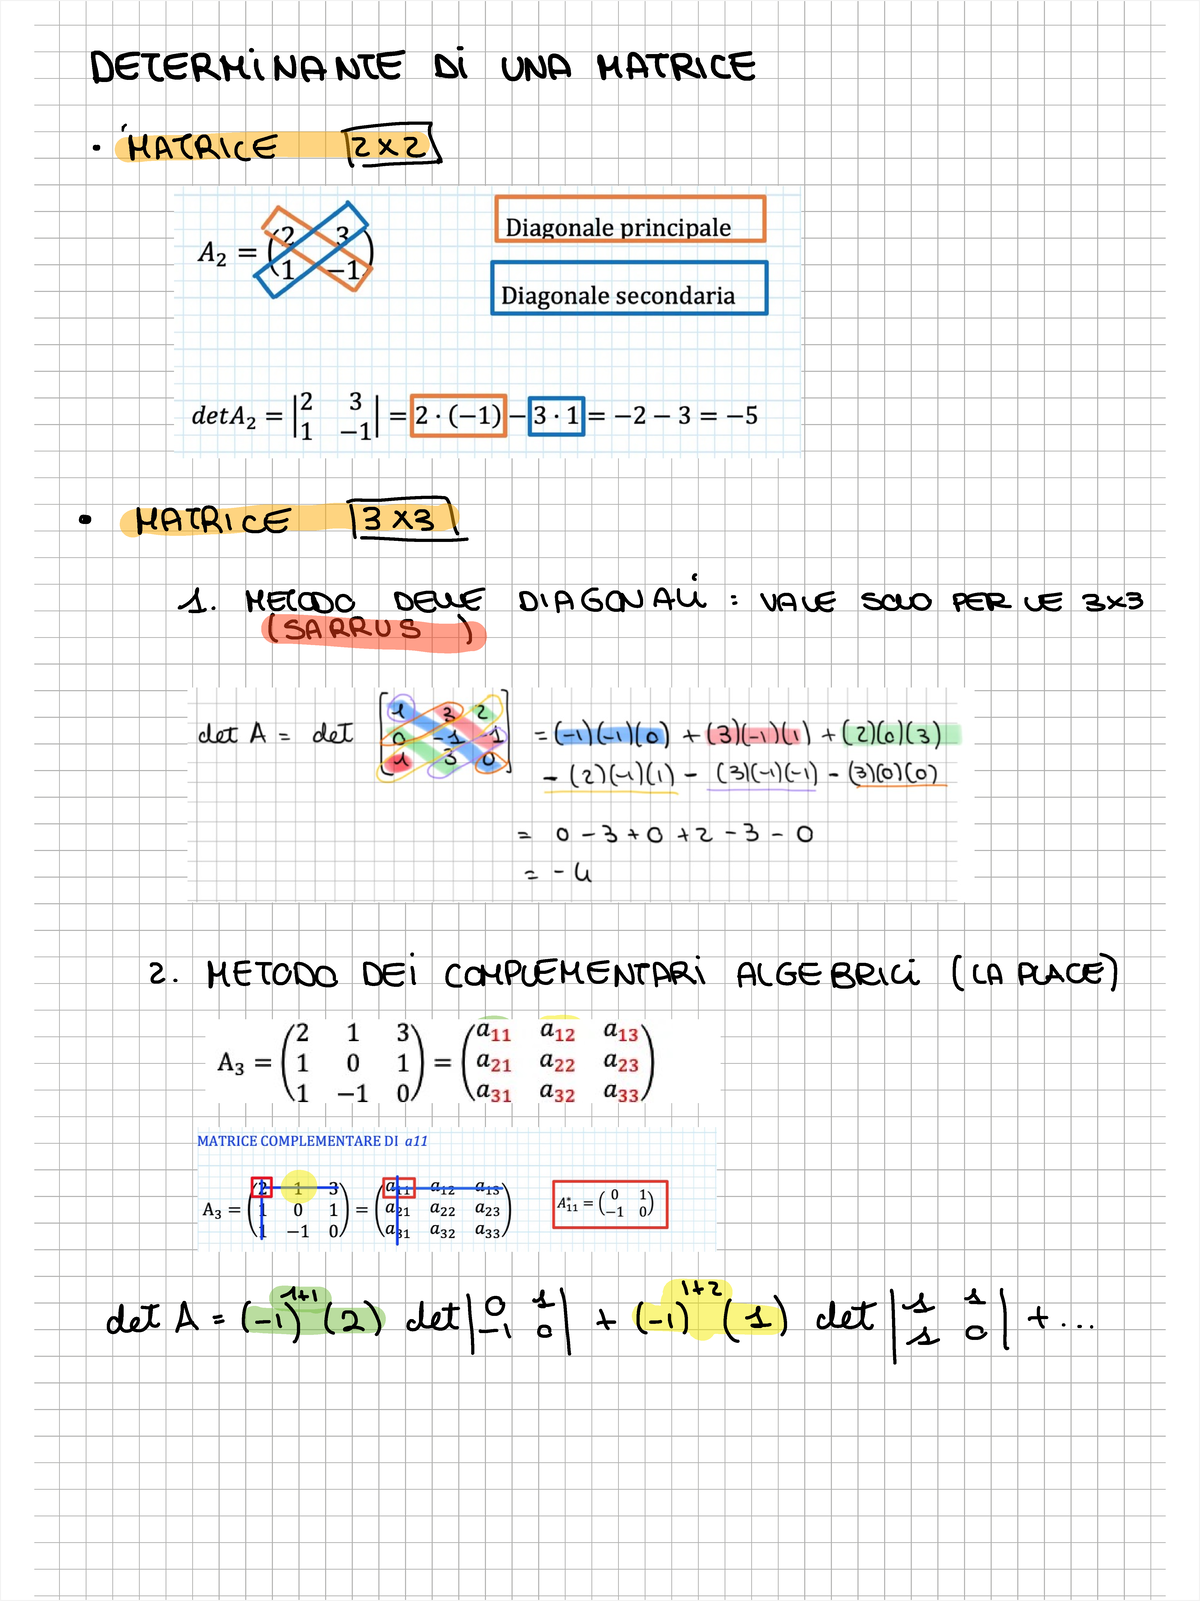 DETERMINANTE Di UNA MATRICE
• MATRICE 2x2
A₂ = (2 3
1 −1)
Diagonale principale
Diagonale secondaria
detA₂ = |2 3
1 −1| = 2 · (−1) − 3 · 1 = −2 − 3 = −5
• MATRICE 3x3
1. METODO DELLE DIAGONALi : VALE SOLO PER LE 3x3
(SARRUS )
det A = det [1 3 2
0 -1 -1
1 3 0] = (-1)(-1)(0) + (3)(-1)(1) + (2)(0)(3)
- (2)(-1)(1) - (3)(-1)(-1) - (3)(0)(0)
= 0 - 3 + 0 + 2 - 3 - 0
= - 4
2. METODO DEi COMPLEMENTARi ALGEBRICi (LA PLACE)
A₃ = (2 1 3
1 0 1
1 −1 0) = (a₁₁ a₁₂ a₁₃
a₂₁ a₂₂ a₂₃
a₃₁ a₃₂ a₃₃)
MATRICE COMPLEMENTARE DI a11
A₃ = (2 1 3
1 0 1
1 −1 0) = (a₁₁ a₁₂ a₁₃
a₂₁ a₂₂ a₂₃
a₃₁ a₃₂ a₃₃)
A*₁₁ = (0 1
−1 0)
det A = (-1)¹⁺¹ (2) det |0 1
-1 0| + (-1)¹⁺² (1) det |1 1
1 0| + ...